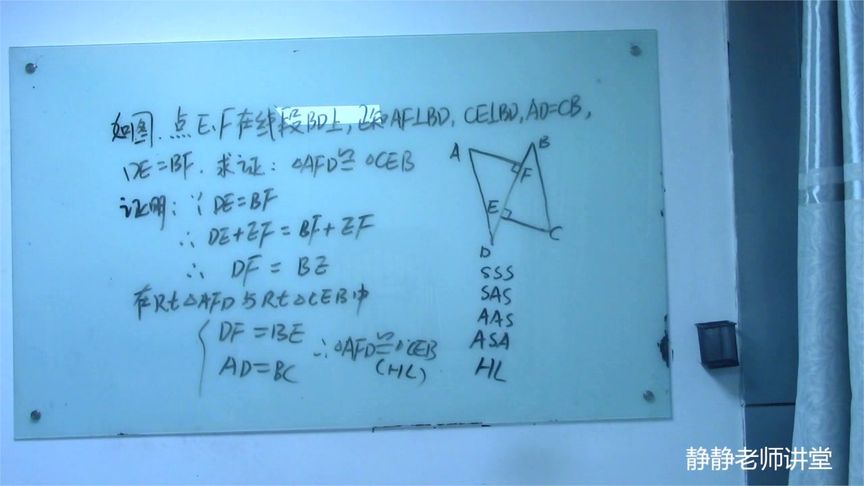 如图.点E、F在线段BD上,已知AF⊥BD,CE⊥BD,AD=CB,
DE=BF.求证:△AFD≌△CEB
证明:∵DE=BF
∴DE+EF=BF+EF
∴DF=BE
在Rt△AFD与Rt△CEB中
DF=BE
AD=BC
∴△AFD≌△CEB
(HL)
A
B
F
E
C
D
SSS
SAS
AAS
ASA
HL
静静老师讲堂